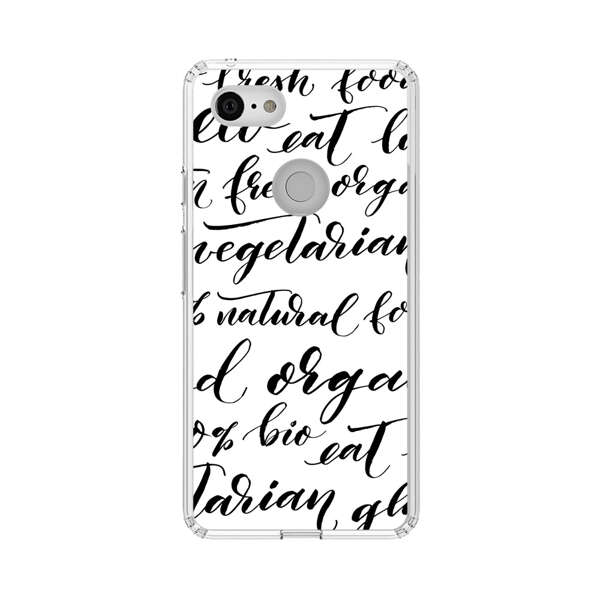 fresh foo
eat l
fre orga
vegetarian
% natural fo
d orga
0% bio eat
tarian gl